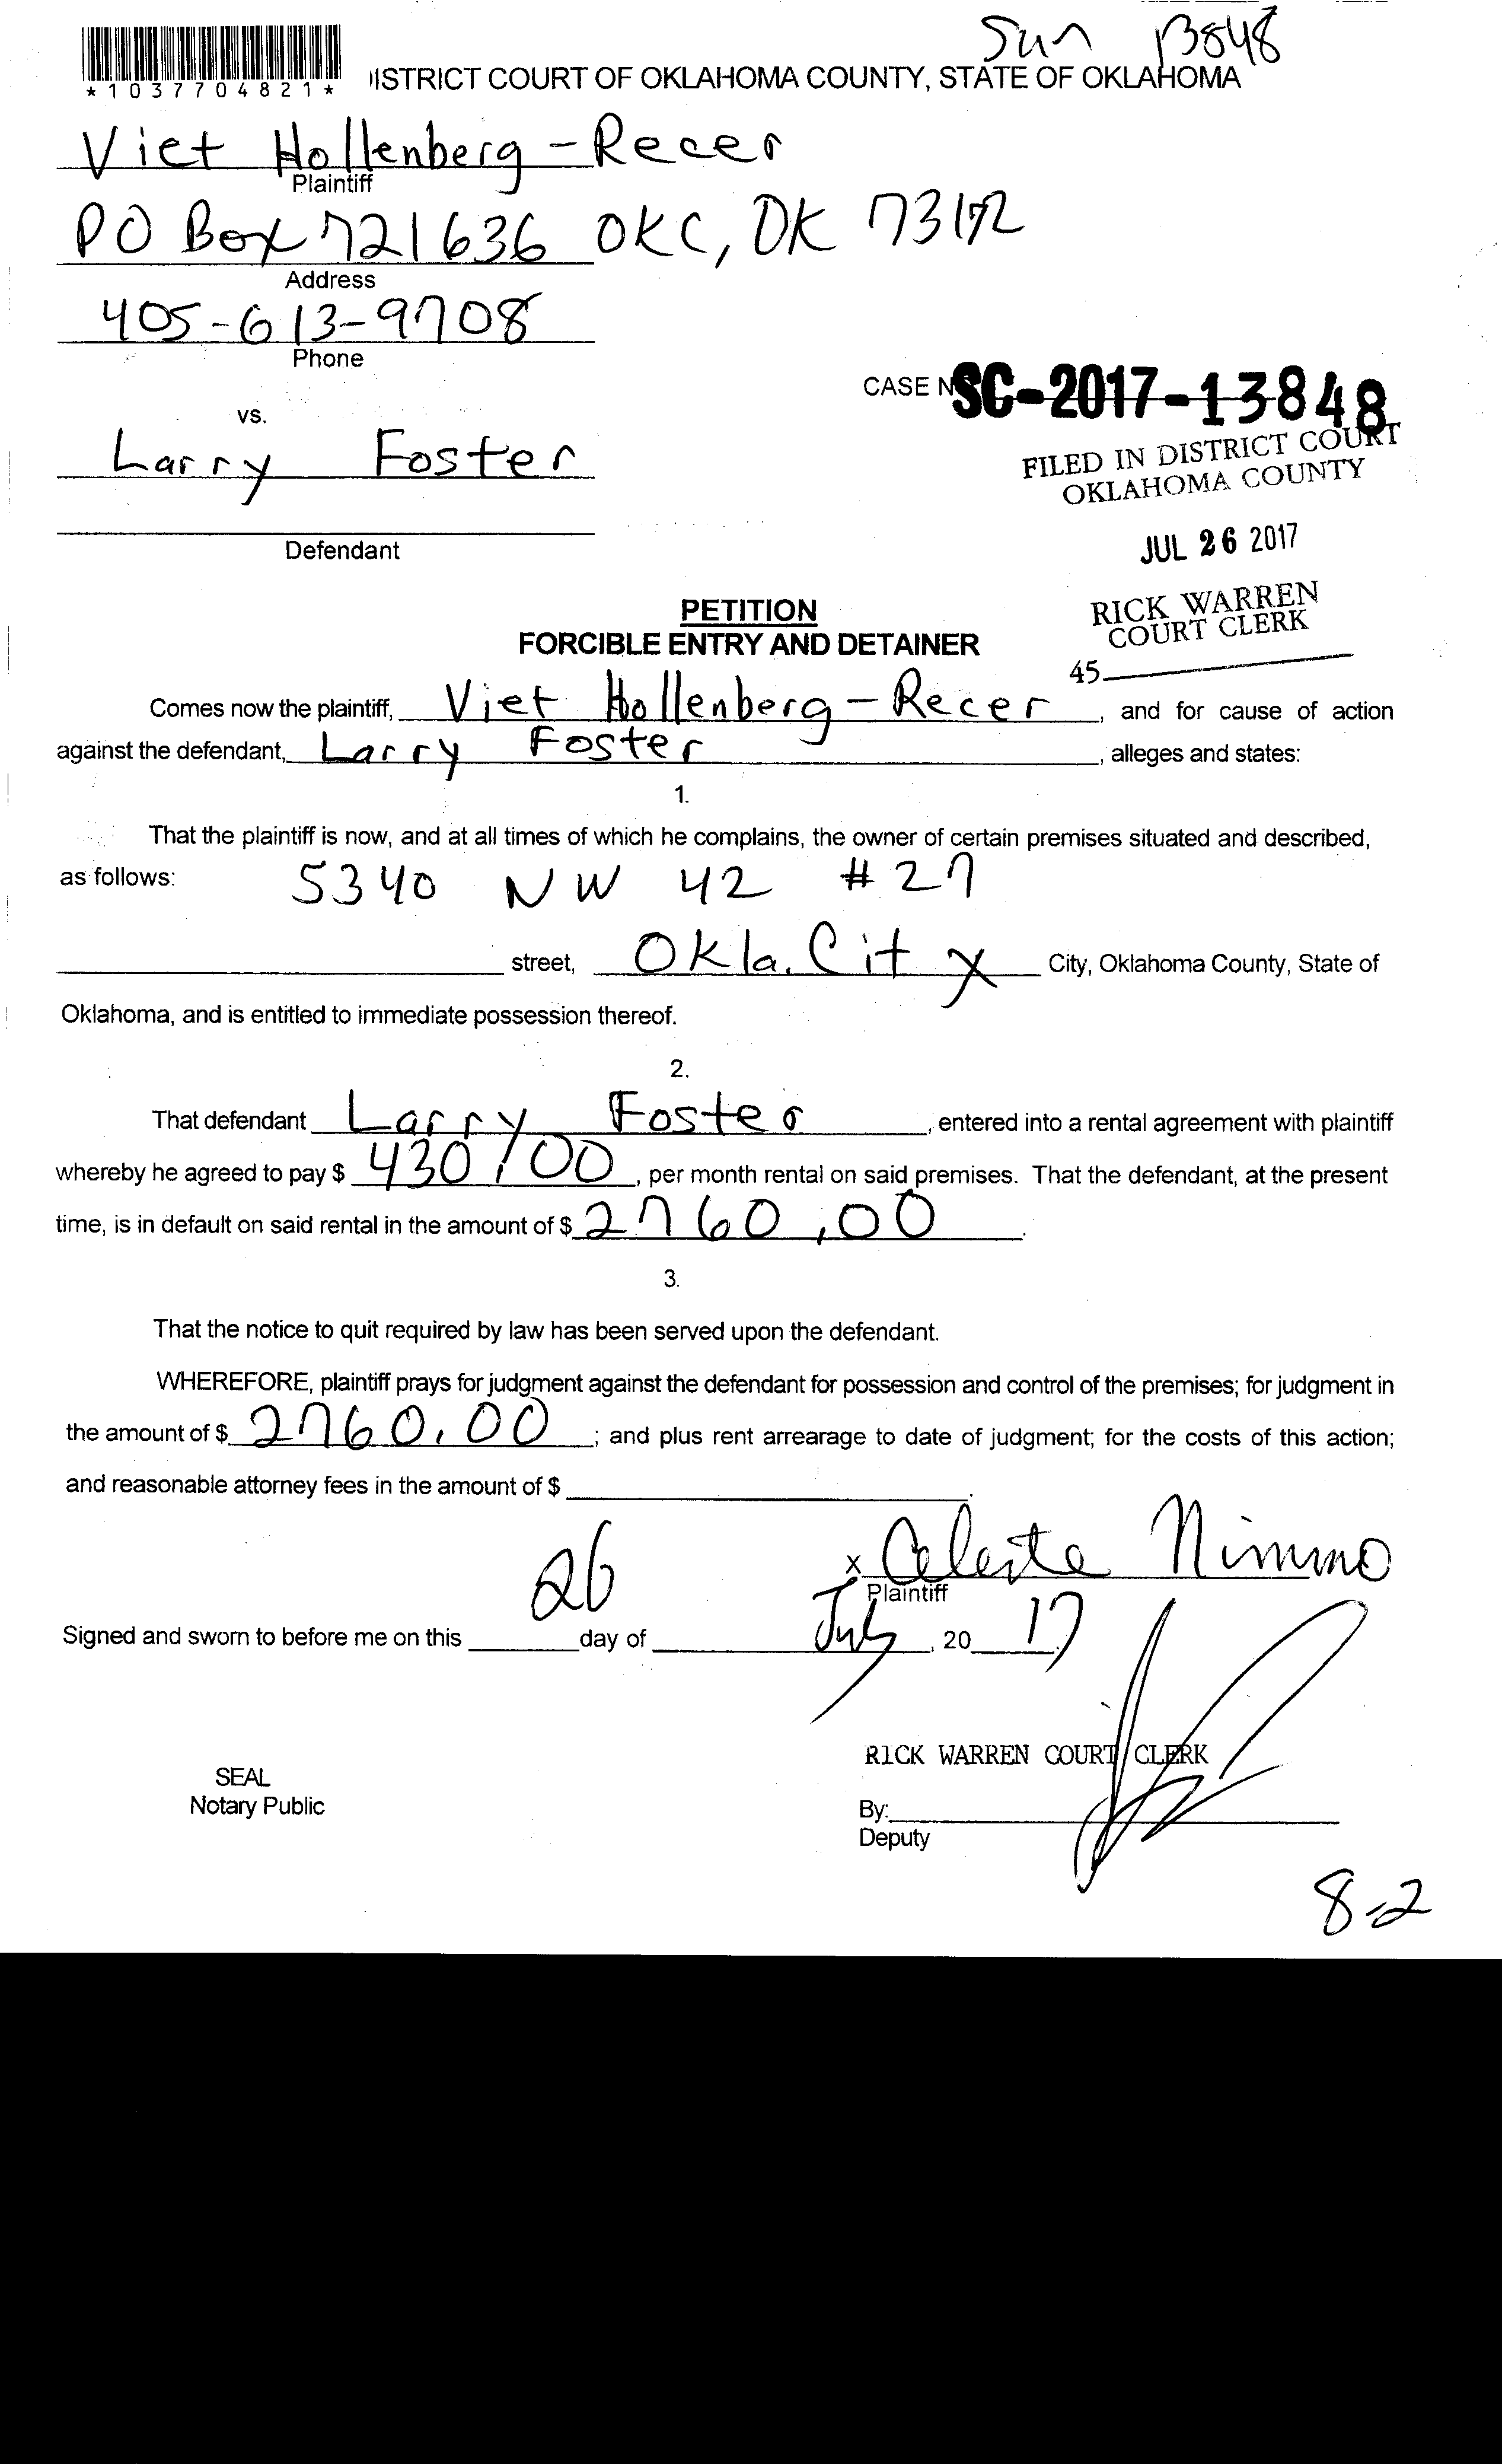 Sun 13848
*1037704821* ISTRICT COURT OF OKLAHOMA COUNTY, STATE OF OKLAHOMA
Viet Hollenberg-Recer
Plaintiff
PO Box 721636 OKC, OK 73172
Address
405-613-9708
Phone
CASE N SC-2017-13848
vs.
Larry Foster
FILED IN DISTRICT COURT
OKLAHOMA COUNTY
Defendant
JUL 26 2017
PETITION
RICK WARREN
COURT CLERK
FORCIBLE ENTRY AND DETAINER
45
Comes now the plaintiff, Viet Hollenberg-Recer, and for cause of action
against the defendant, Larry Foster, alleges and states:
1.
That the plaintiff is now, and at all times of which he complains, the owner of certain premises situated and described,
as follows: 5340 NW 42 #27
street, Okla. City City, Oklahoma County, State of
Oklahoma, and is entitled to immediate possession thereof.
2.
That defendant Larry Foster, entered into a rental agreement with plaintiff
whereby he agreed to pay $ 430.00, per month rental on said premises. That the defendant, at the present
time, is in default on said rental in the amount of $ 2760.00.
3.
That the notice to quit required by law has been served upon the defendant.
WHEREFORE, plaintiff prays for judgment against the defendant for possession and control of the premises; for judgment in
the amount of $ 2760.00; and plus rent arrearage to date of judgment; for the costs of this action;
and reasonable attorney fees in the amount of $
x Celeste Nimmo
Plaintiff
Signed and sworn to before me on this 26 day of July, 20 17
RICK WARREN COURT CLERK
SEAL
Notary Public
By:
Deputy
8-2